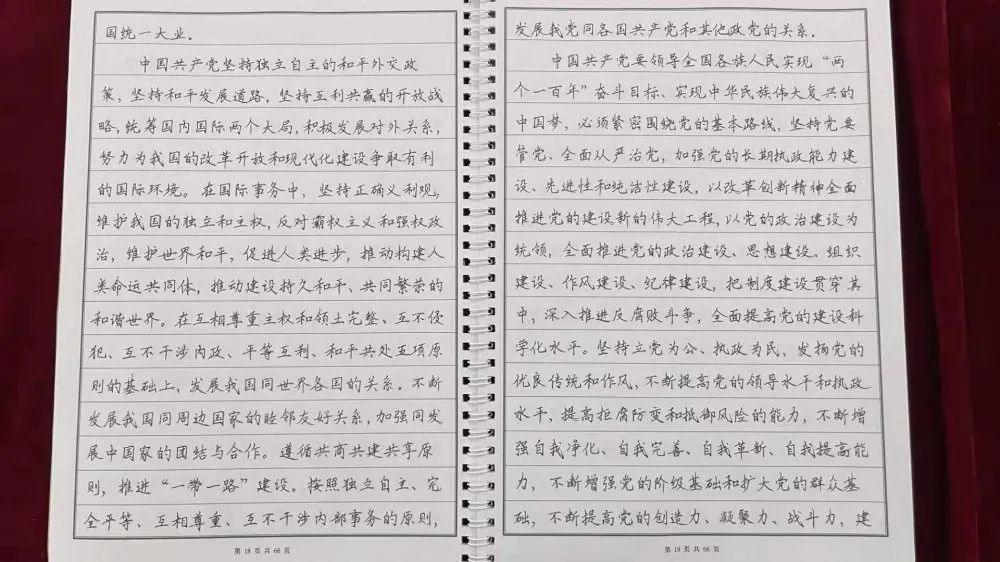 国统一大业.
中国共产党坚持独立自主的和平外交政
策，坚持和平发展道路，坚持互利共赢的开放战
略，统筹国内国际两个大局，积极发展对外关系，
努力为我国的改革开放和现代化建设争取有利
的国际环境。在国际事务中，坚持正确义利观，
维护我国的独立和主权，反对霸权主义和强权政
治，维护世界和平，促进人类进步，推动构建人
类命运共同体，推动建设持久和平、共同繁荣的
和谐世界。在互相尊重主权和领土完整、互不侵
犯、互不干涉内政、平等互利、和平共处五项原
则的基础上，发展我国同世界各国的关系.不断
发展我国同周边国家的睦邻友好关系，加强同发
展中国家的团结与合作。遵循共商共建共享原
则，推进“一带一路”建设。按照独立自主、完
全平等、互相尊重、互不干涉内部事务的原则，
第 18 页 共 66 页
发展我党同各国共产党和其他政党的关系.
中国共产党要领导全国各族人民实现“两
个一百年”奋斗目标、实现中华民族伟大复兴的
中国梦，必须紧密围绕党的基本路线，坚持党要
管党、全面从严治党，加强党的长期执政能力建
设、先进性和纯洁性建设，以改革创新精神全面
推进党的建设新的伟大工程，以党的政治建设为
统领，全面推进党的政治建设、思想建设、组织
建设、作风建设、纪律建设，把制度建设贯穿其
中，深入推进反腐败斗争，全面提高党的建设科
学化水平。坚持立党为公、执政为民，发扬党的
优良传统和作风，不断提高党的领导水平和执政
水平，提高拒腐防变和抵御风险的能力，不断增
强自我净化、自我完善、自我革新、自我提高能
力，不断增强党的阶级基础和扩大党的群众基
础，不断提高党的创造力、凝聚力、战斗力，建
第 19 页 共 66 页